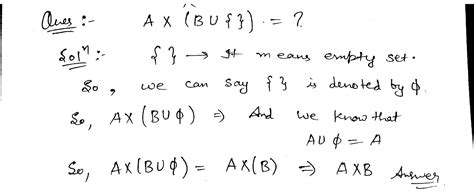 Ques :- A X (B U { }) . = ?
Solⁿ :- { } → It means empty set.
So, we can say { } is denoted by ϕ.
So, AX(BUϕ) ⇒ And we know that
AUϕ = A
So, AX(BUϕ) = AX(B) ⇒ AXB Answer